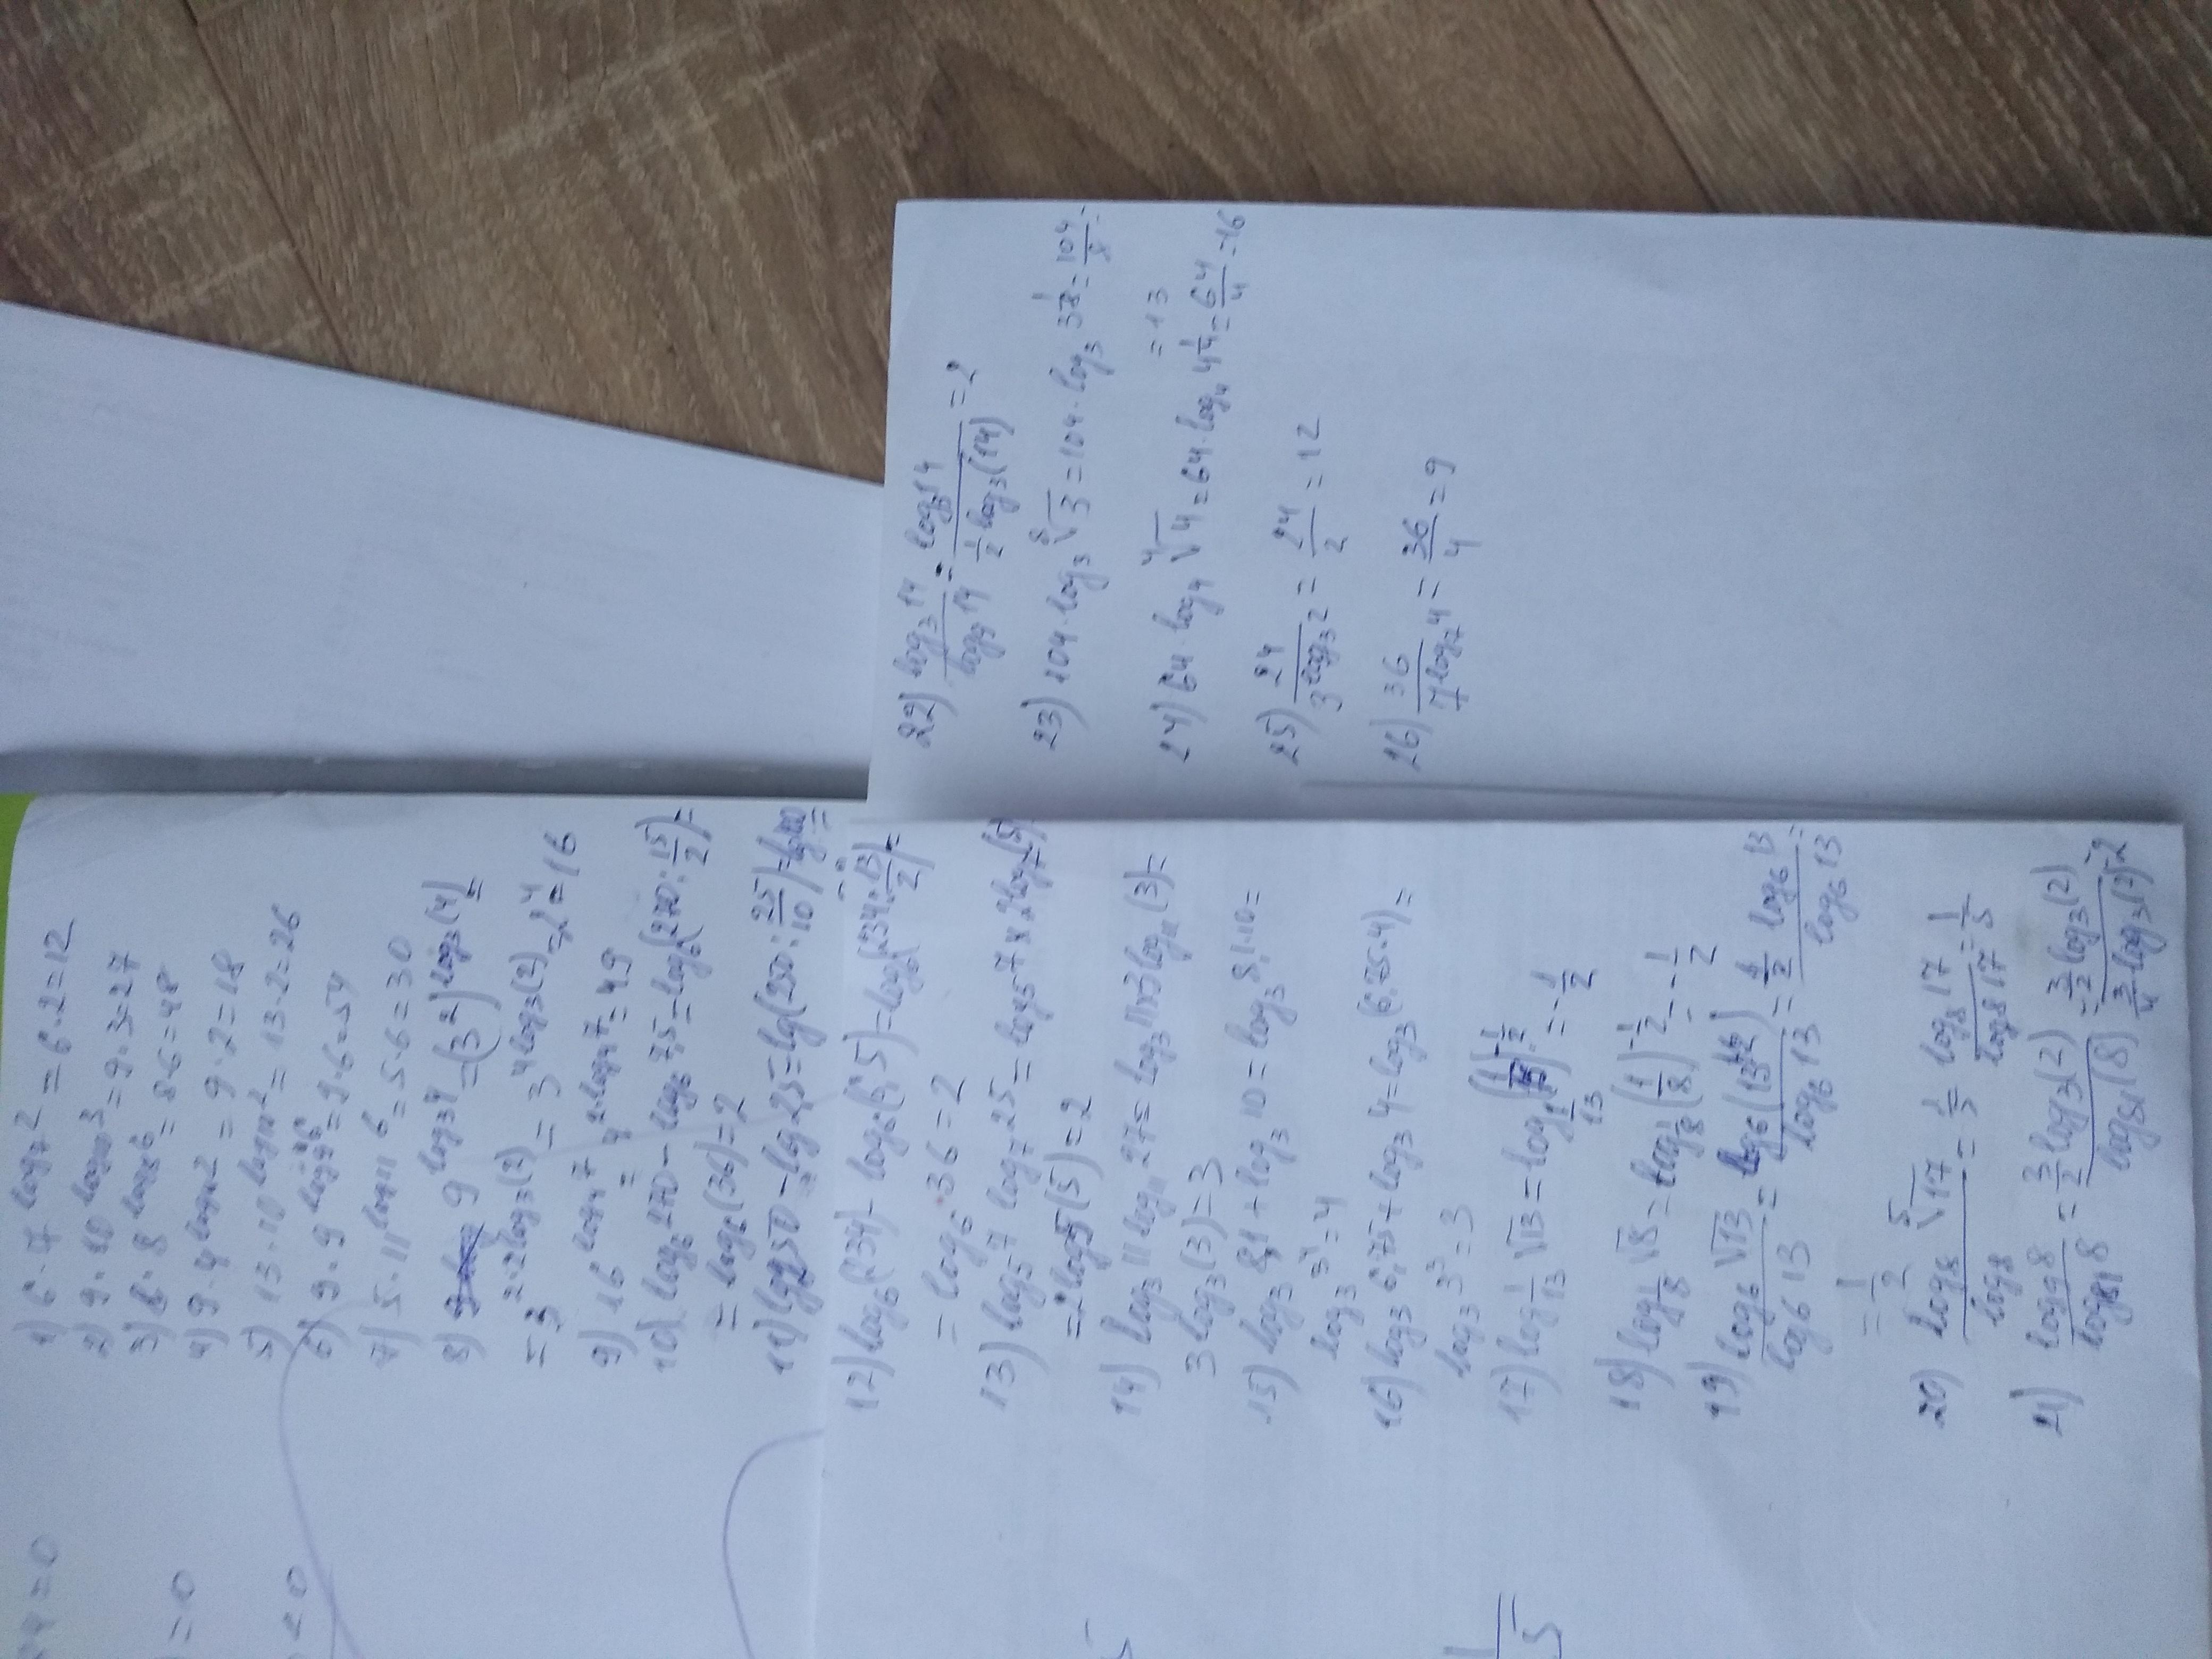 1) 6·7^log₇2 = 6·2=12
2) 9·10^log₁₀3 = 9·3=27
3) 8·8^log₈6 = 8·6=48
4) 9·4^log₄2 = 9·2=18
5) 13·10^log₁₀2 = 13·2=26
6) 9·9^log₉6 = 9·6=54
7) 5·11^log₁₁6 = 5·6=30
8) 9^log₃4 = (3²)^log₃(4) =
= 3^2·2log₃(2) = 3^4log₃(2) = 2⁴ = 16
9) 16^log₄7 = 4^2·log₄7 = 49
10) log₆270 - log₆7,5 = log₆(270:15/2) =
= log₆(36) = 2
11) lg250 - lg2,5 = lg(250:25/10) = lg100 =
12) log₆(234) - log₆(6,5) = log₆(234:13/2) =
= log₆·36 = 2
13) log₅7 log₇25 = log₅7×2log₇(5)
= 2log5(5) = 2
14) log₃11 log₁₁27 = log₃11×3log₁₁(3) =
3log₃(3) = 3
15) log₃8,1 + log₃10 = log₃8,1·10 =
log₃3⁴ = 4
16) log₃6,75 + log₃4 = log₃(6,75·4) =
log₃3³ = 3
17) log_1/13 √13 = log_1/13 (1/13)^-1/2 = -1/2
18) log_1/8 √8 = log_1/8 (1/8)^-1/2 = -1/2
19) log₆√13/log₆13 = log₆(13^1/2)/log₆13 = 1/2 log₆13/log₆13 =
= 1/2
20) log₈ ⁵√17/log₈ = 1/5 log₈17/log₈17 = 1/5
21) log₉8/log₈₁8 = 3/2 log₃(2)/log₈₁(8) = 3/2 log₃(2)/3/4 log₃(2) = 2
22) log₃14/log₉14 = log₃14/1/2 log₃(14) = 2
23) 104·log₃ ⁸√3 = 104·log₃3^1/8 = 104/8 =
= 13
24) 64·log₄ ⁴√4 = 64·log₄4^1/4 = 64/4 = 16
25) 24/3^log₃2 = 24/2 = 12
26) 36/7^log₇4 = 36/4 = 9